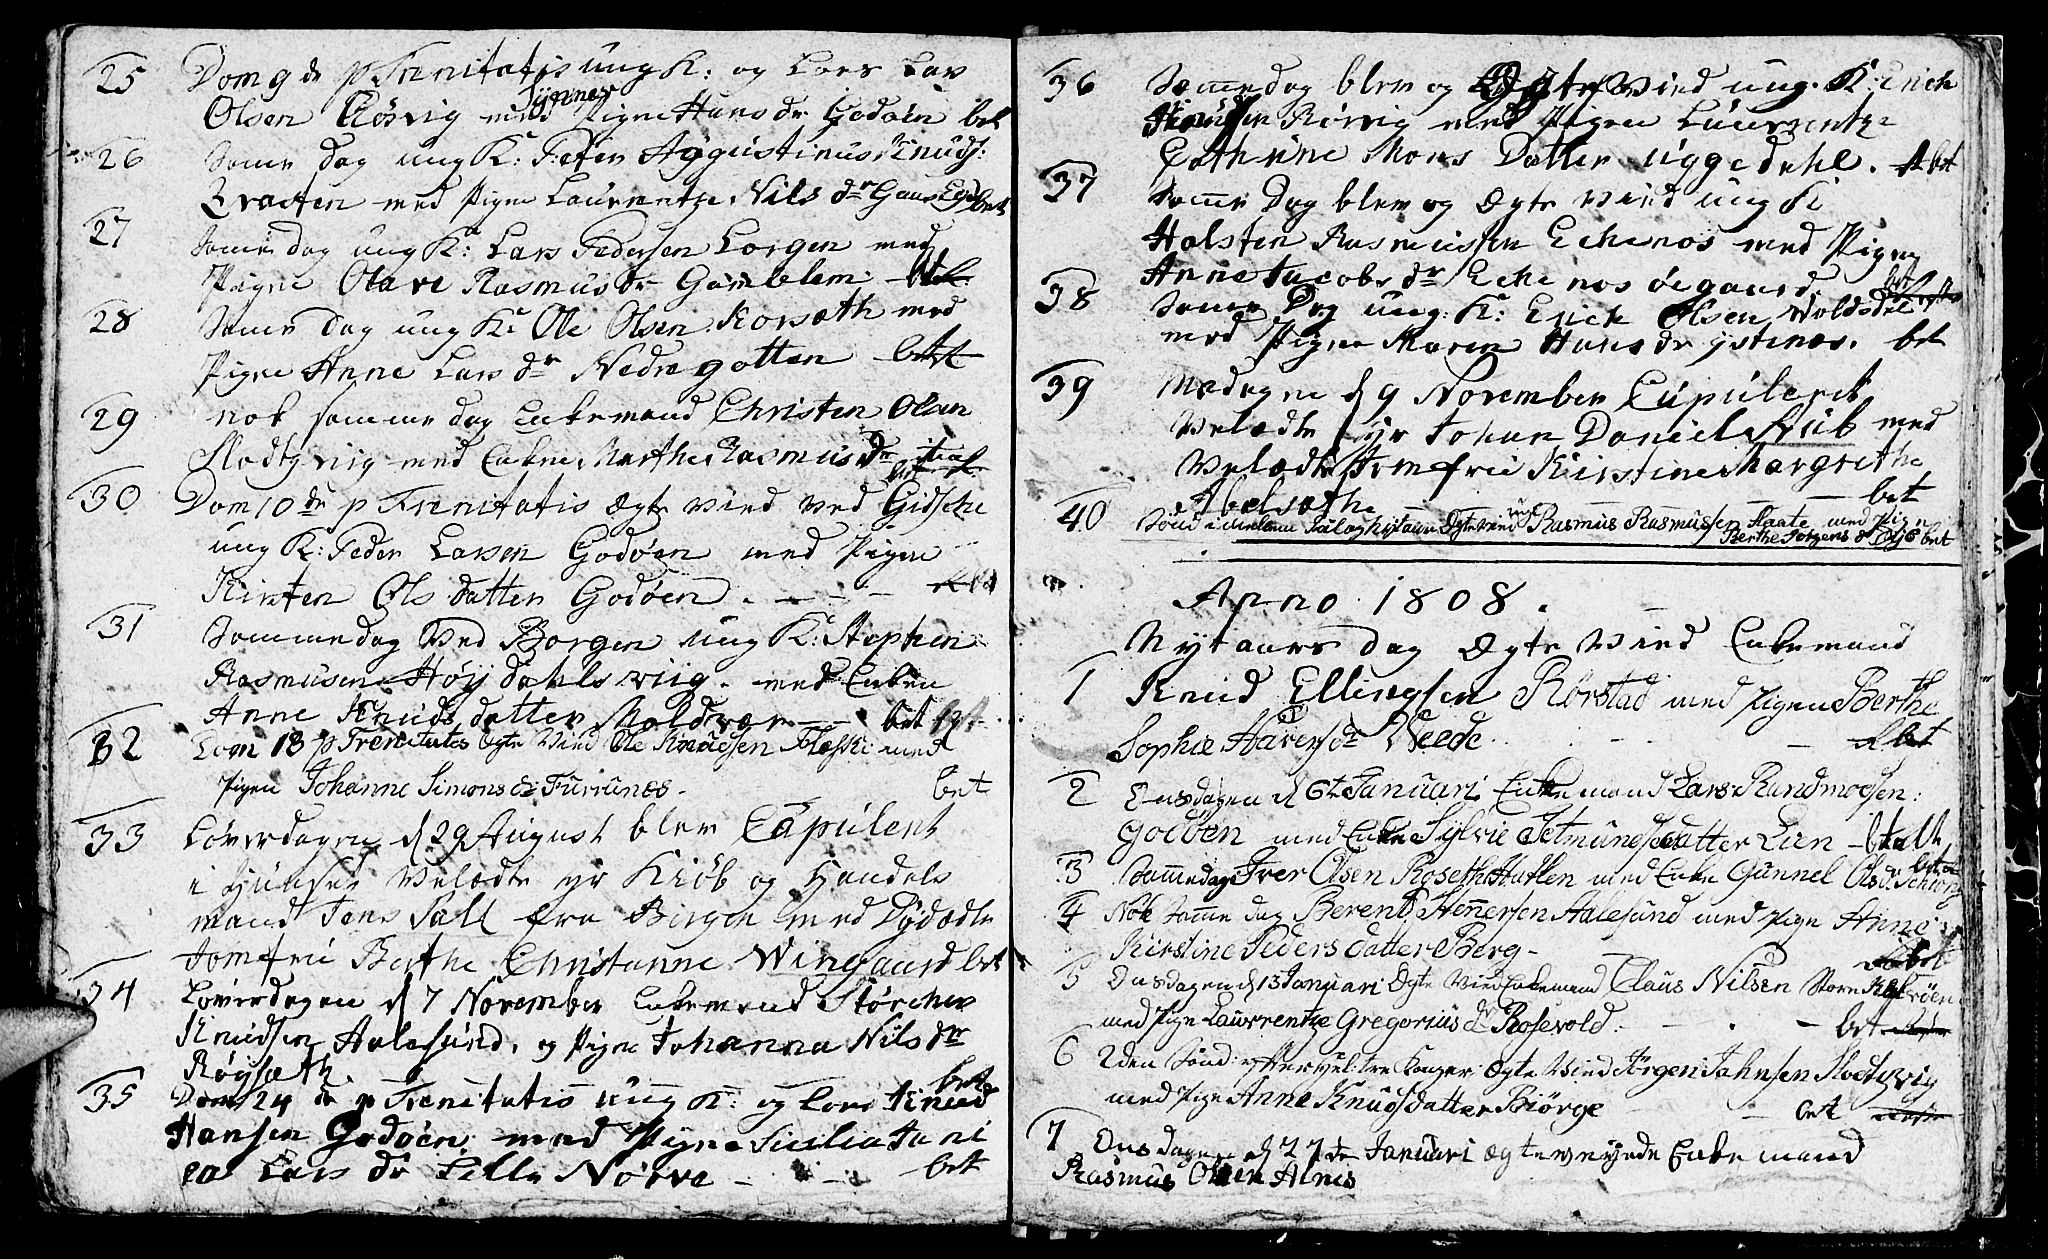 25 Dom 9 de p Trenitatis ung K: og Lars
Olsen Rösvig med Pigne Synnev Hans dr Godöen bet
26 Same dag ung K: Peter Aggustinus Knuds:
med Pigne Laurentze Nils dr bet
27 Same dag ung K: Lars Pedersen Lorgen med
Pigne Olave Rasmus dr Gamlem bet
28 Same dag ung K: Ole Olsen Korsæth med
Pigne Anne Lars dr Nedregotten bet
29 nok samme dag Enkemand Christen Olsen
Slodtzviig med Enken Marthe Rasmus dr
30 Dom 10 de p Trenitatis Ægte vied ved Gidsche
ung K: Peder Larsen Godöen med Pigen
Kirsten Ols datter Godöen . - - -
31 Sammedag Ved Borgen ung K: Stephen
Rasmusen Höydahlsviig . med Enken
Anne Knuds datter Moldvær - - bet
32 Dom 13 p Trenitates Ægte Vied Ole Knudsen med
Pigen Johanne Simons dr Furrunes . bet
33 Löverdagen d 29 August blev Capulent
i Hunset Velædle Hr Kiöb og Handels
mand Jens Fall fra Bergen med Dydædle
Jomfrü Berthe Christanne Wingaard bet
34 Löverdagen d 7 November Enkemand Störcher
Knudsen Aalesund, og Pigne Johanna Nils dr
Röysæth bet
35 Dom 24 de p Trenitatis ung K: og Cone Knud
Hansen Godöen med Pigne Sicilia
Lars dr Lille Nörve - - - bet
36 Sammedag blev og Ægte Vied ung K: Erich
Knudsen Rösvig med Pigen Laurentze
Cathrine Mons Datter uggedahl . bet
37 Samme Dag blev og Ægte Vied ung K:
Holsten Rasmussen Echenos med Pigen
Anne Jacobs dr Echenosöegaard bet
38 Same Dag ung K: Erich Olsen Woldsdal
med Pigen Maren Hans dr ystenes . bet
39 Mædagen d 9 November Cupulerit
Velædle Hr Johan Daniel Stub med
Velædle Jomfrü Kirstine Margrethe
Abelsæth - - - bet
40 Sönd imelem Jul og Nytaar Ægtevied ung Rasmus Rasmussen Slaate med Pigen
Berthe Jörgens dr bet
Anno 1808 .
Nytaars dag Ægte Vied Enkemand
1 Knud Ellingsen Rörstad med Pigen Berthe
Sophie dr Veede . - - - bet
2 Onsdagen d 6te Januari Enkemand Lars Randmodsen :
Godöen med Enke Sylvie Jetmundsdatter Lien - btalt
3 Sammedag Iver Olsen Roseth Hatlen med Enke Gunnel Ols dr bet
4 Nok Samme dag Berent Stenersen Aalesund med Pige Anne
Kirstine Peders datter Berg - bet
5 Onsdagen d 13 Januari Ægte Vied Enkemand Claus Nilsen Store Kalvöen
med Pige Laurrentze Gregorius dr Rosevold . - - - bet
6 2den Sönd: efter hel: tre Konger Ægte Vied Jörgen Jahnsen Slodtzvig
med Pige Anne Knudsdatter Biörge - bet
7 Onsdagen d 27 de Januari Ægteweyede Enkemand
Rasmus Olsen Alnes